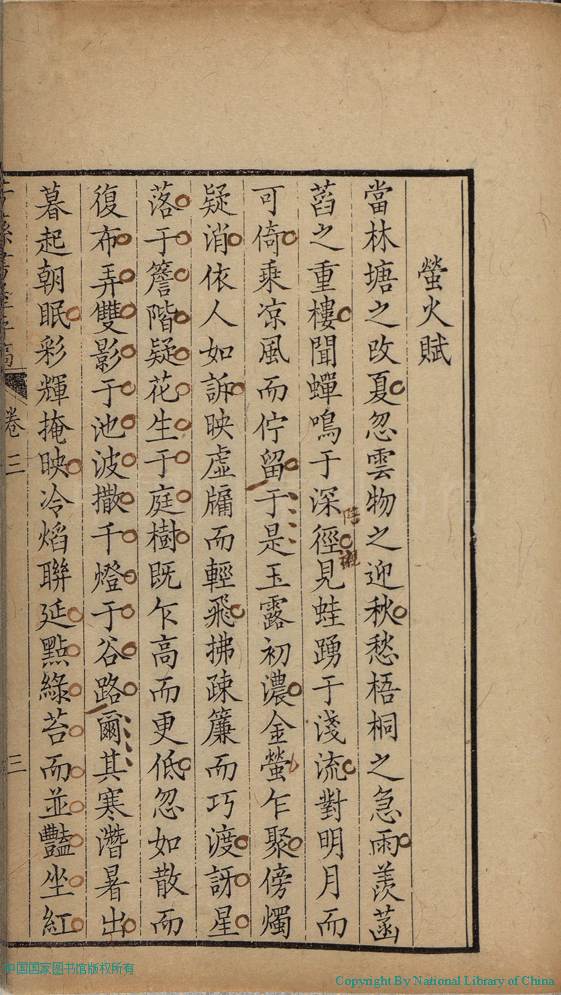 螢火賦
當林塘之改夏忽雲物之迎秋愁梧桐之急雨羨菡
萏之重樓聞蟬鳴于深徑見蛙踴于淺流對明月而
可倚乘凉風而佇留于是玉露初濃金螢乍聚傍燭
疑消依人如訴映虛牖而輕飛拂疎簾而巧渡訝星
落于簷階疑花生于庭樹既乍高而更低忽如散而
復布弄雙影于池波撒千燈于谷路爾其寒潛暑出
暮起朝眠彩輝掩映冷熖聯延點綠苔而並豔坐紅
卷三
三
中国国家图书馆版权所有
Copyright By National Library of China